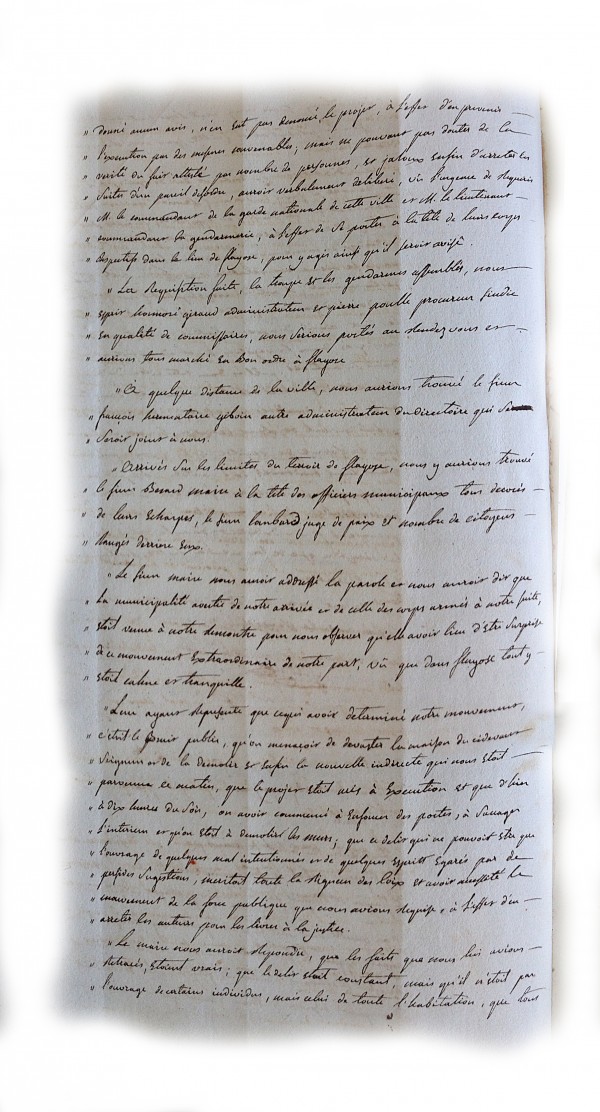 " donné aucun avis, n'en eut pas denoncé le projet, à l'effet d'en prevenir
" l'execution par des mesures convenables; mais ne pouvant pas douter de la
" verité du fait attesté par nombre de personnes, et jaloux enfin d'arreter les
" suites d'un pareil desordre, auroit verbalement deliberé, vû l'urgence de requerir
" M. le commandant de la garde nationale de cette ville et M. le lieutenant
" commandant la gendarmerie, à l'effet de se porter à la tête de leurs corps
" respectifs dans le lieu de flayosc, pour y agir ainsi qu'il seroit avisé.
" La Requisition faite, la troupe et les gendarmes assemblés, nous
" esprit honnoré giraud administrateur et pierre poulle procureur sindic
" en qualité de commissaires, nous serions portés au rendez vous et
" aurions tous marché en bon ordre à flayosc
" A quelque distance de la ville, nous aurions trouvé le sieur
" françois hermentaire geboin autre administrateur du directoire qui se
" seroit joint à nous.
" Arrivés sur les limites du terroir de flayosc, nous y aurions trouvé
" le sieur Besard maire à la tête des officiers municipaux tous decorés
" de leurs Echarpes, le sieur lombard juge de paix et nombre de citoyens
" Rangés derriere eux.
" Le sieur maire nous auroit addressé la parole et nous auroit dit que
" la municipalité avertie de notre arrivée et de celle des corps armés à notre suite,
" étoit venue à notre rencontre pour nous observer qu'elle avoit lieu d'être surprise
" de ce mouvement Extraordinaire de notre part, vû que dans flayosc tout y
" étoit calme et tranquille.
" Leur ayant Représenté que ce qui avoit determiné notre mouvement,
" c'étoit le bruit public, qu'on menaçoit de devaster la maison du cidevant
" Seigneur et de la demolir et enfin la nouvelle indirecte qui nous étoit
" parvenue ce matin, que le projet étoit mis à Execution et que d'hier
" à dix heures du soir, on avoit commencé à Enfoncer des portes, à saccager
" l'interieur et qu'on étoit à demolir les murs; que ce delit qui ne pouvoit etre que
" l'ouvrage de quelques mal intentionnés et de quelques Esprits Egarés par de
" perfides sugestions, meritoit toute la rigueur des loix et avoit necessité le
" mouvement de la force publique que nous avions requise, à l'effet d'en
" arreter les auteurs pour les livrer à la justice.
" Le maire nous auroit Repondu, que les faits que nous lui avions
" Retracés, étoient vrais; que le delit étoit constant, mais qu'il n'étoit pas
" l'ouvrage de certains individus, mais celui de toute l'habitation, que tous